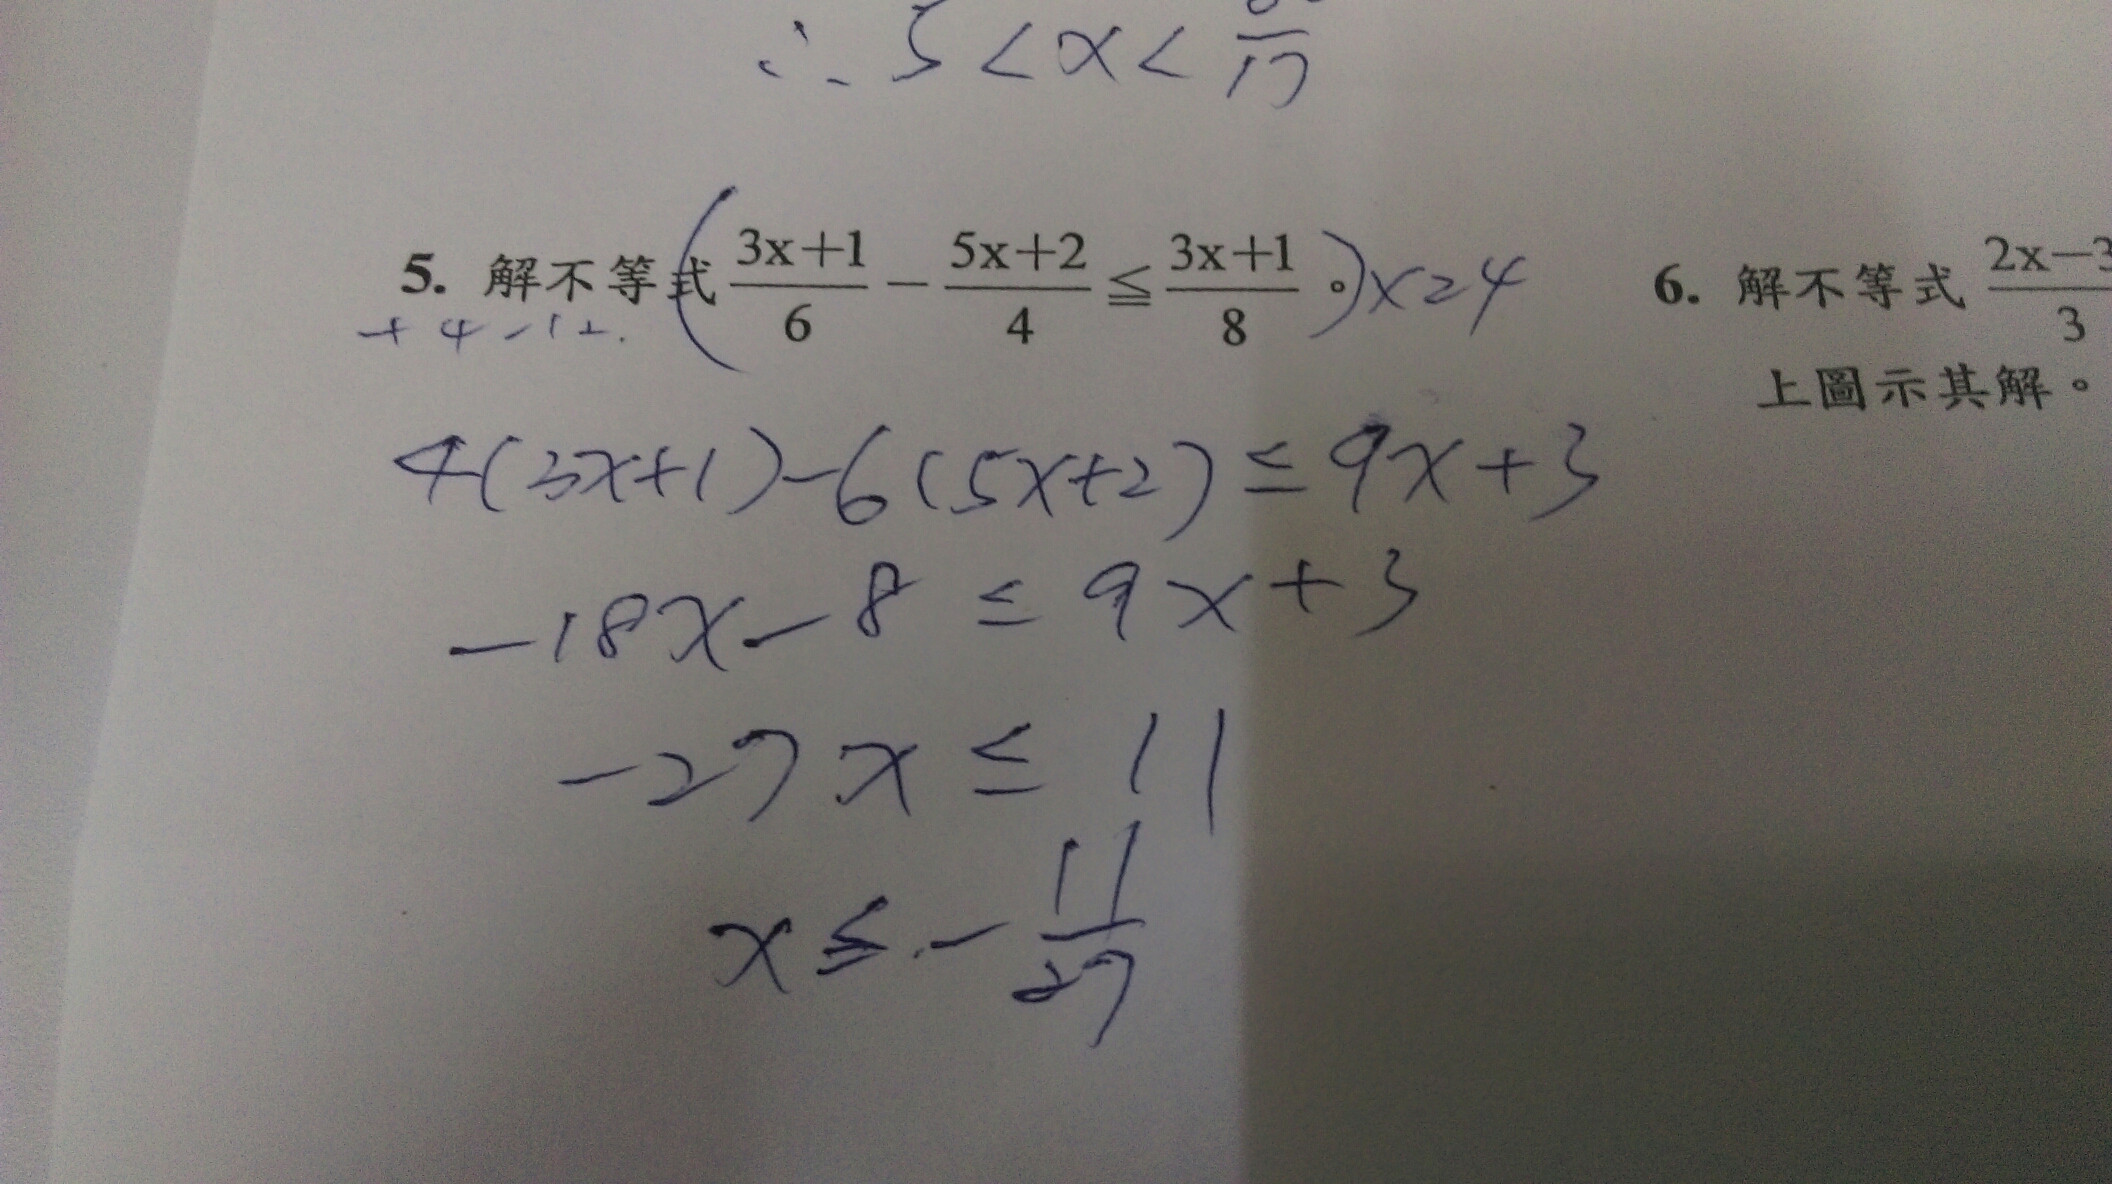 ∴ 5 < x < /17
5. 解不等式 (3x+1/6 − 5x+2/4 ≦ 3x+1/8 。) x24
+4 -12.
4(3x+1)-6(5x+2) ≤ 9x+3
-18x-8 ≤ 9x+3
-27x ≤ 11
x ≤ - 11/27
6. 解不等式 2x−3/3
上圖示其解。